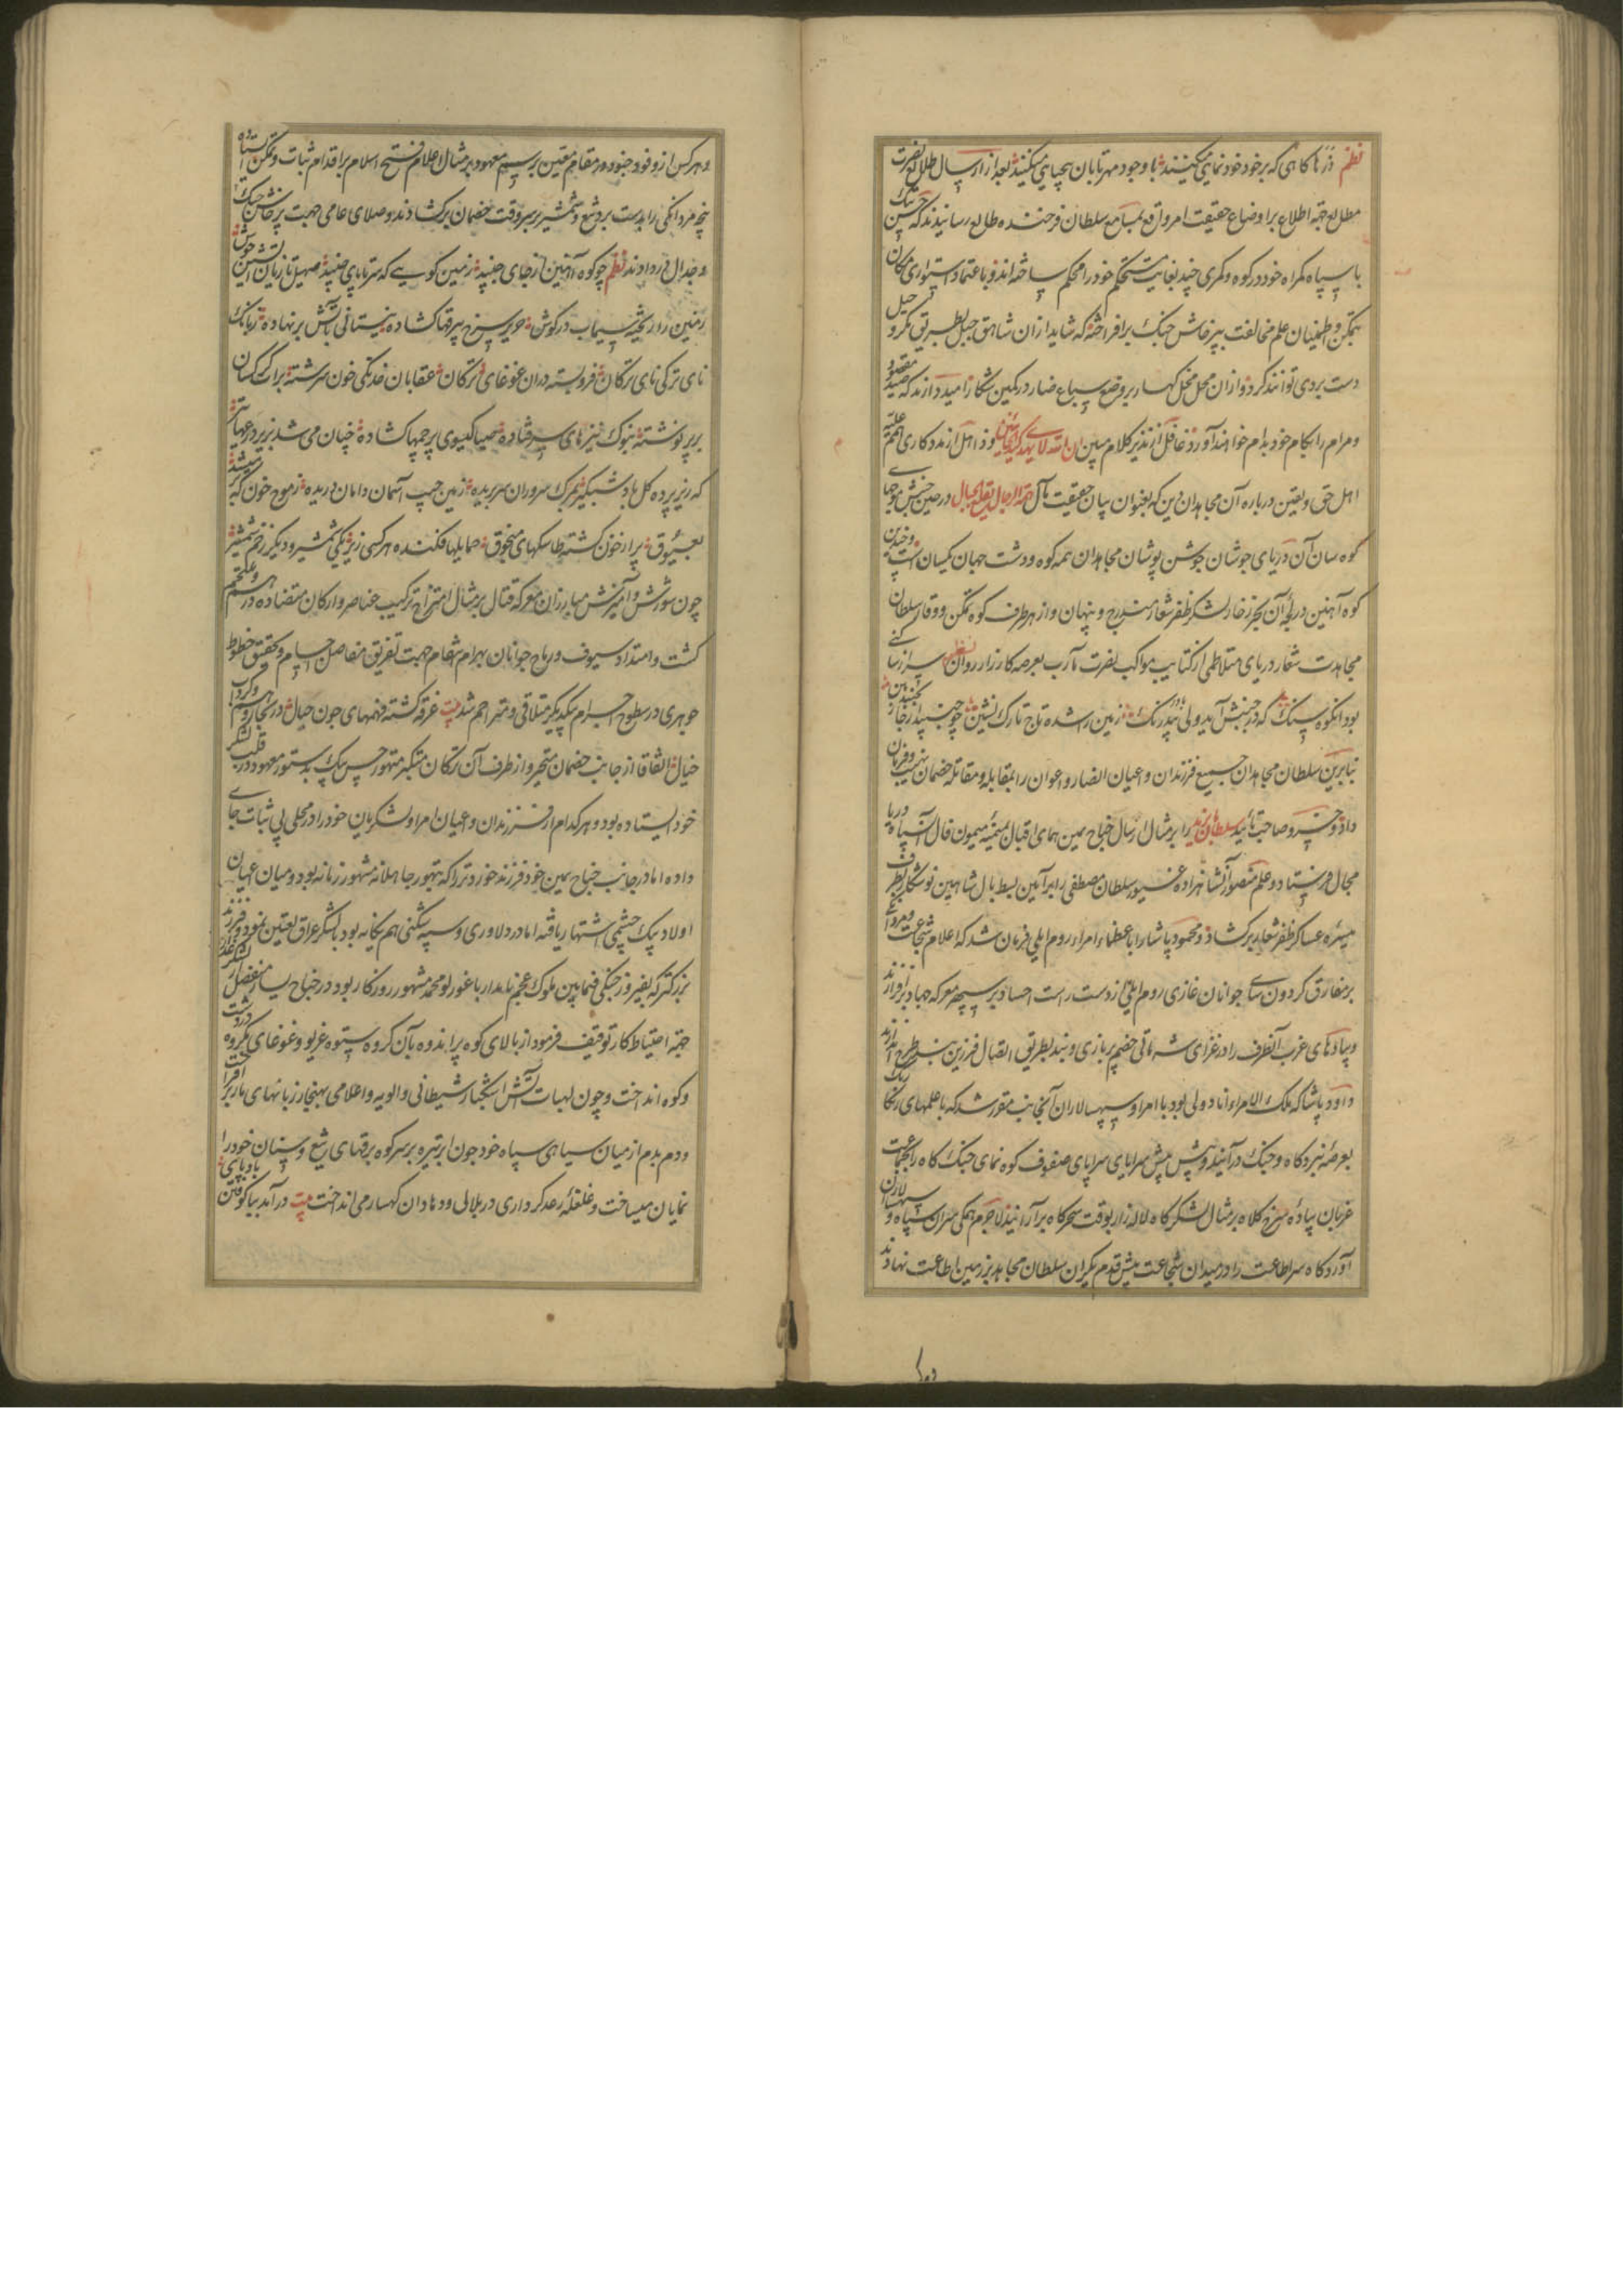 نظم ذرّها کاهی که بر خود خود نمایی میکنند با وجود مهر تابان بیحیایی میکنند بعد از ارسال طلایع نصرت
مطالع جهة اطلاع بر اوضاع حقیقت امر واقع بمسامع سلطان فرخنده طالع رسانیدند که حسن بیک
با سپاه کمراه خود در کوه و کمری چند بغایت مستحکم خود را محکم ساخته اند و باعتماد استواری مکان
بتمکن و اطمینان علم مخالفت بپرخاش جنک برافراخته که شاید از ان شاهق جبل بطریق مکر و حیل
دست بردی توانند کرد و از ان محل مخیل کهسار بر وضع سباع ضار در کمین شکار امید دارند که صید مقصود
و مرام را بکام خود بدام خواهند آورد غافل از نذیر کلام مبین ان الله لا یهدی کید الخائنین و ذاهل از مددکاری همم علیّه
اهل حق و یقین درباره آن مجاهدان دین که بعنوان بیان حقیقت مآل همة الرجال تقلع الجبال در حین جنبش
کوه سان آن دریای جوشان جوشن پوشان مجاهدان همه کوه و دشت جهان یکسان است و چندین
کوه آهنین در لجّه آن بحر زخار لشکر ظفر شعار مندرج و پنهان و از هر طرف کوه تمکن و وقار سلطان
مجاهدت شعار دریای متلاطمی از کتایب مواکب نصرت مآرب بعرصه کارزار روان نظم
بود انکوه سنک که در جنبش آید ولی بیدرنک زمین را شده تاج تارک نشین چو جنبید از جای
بنابرین سلطان مجاهدان جمیع فرزندان و اعیان انصار و اعوان را بمقابله و مقاتله خصمان ترتیب و فرمان
داد و خسرو صاحب تأیید سلطان بایزید را بر مثال ارسال جناح یمین همای اقبال بمیمنه میمون فال آن سپاه دریا
مجال فرستاد و علم منصور آن شاهزاده غیور سلطان مصطفی را بر آیین بسط بال شاهین نو شکار بطرف
میسره عساکر ظفر شعار بر کشاد و محمود پاشا را با عظماء امراء روم ایلی فرمان شد که اعلام شجاعت
بر مفارق کردون سای جوانان غازی روم ایلی از دست راست احساد بر سپهر معرکه جهاد برافرازند
و پیادهای عزب آنطرف را در غزای شه ماتی خصم پر بازی و بند بطریق اتصال فرزین بند طرح اندازند
داود پاشا که ملک الامراء اناطولی بود با امرا و سپهسالاران آنجانب مقرر شد که با علمهای رنکارنک
بعرصه نبردکاه و جنک درآیند و پس و پیش سراپای صفوف کوه نمای جنک کاه را بجماعت
عزبان پیاده سرخ کلاه بر مثال لشکر کاه لاله زار بوقت سحرکاه برآرایند لاجرم همکی سران سپاه و سپهسالاران
آوردکاه سر اطاعت را در میدان شجاعت پیش قدم یکران سلطان مجاهد بر زمین اطاعت نهادند
و هر کس از وفود جنود در مقام معین بر رسم معهود بر مثال اعلام فتح اسلام بر اقدام ثبات و تمکن
پنجه مردانکی را بدست برد تیغ و شمشیر بر سر وقت خصمان برکشادند و صلای عامی جهت پرخاش جنک
و جدال در دادند نظم چو کوه آهنین از جای جنبید زمین کویی که سر تا پای جنبید صهیل تازیان آتشین جوش
زمین را ریخته سیماب در کوش حریر سرخ بیرقها کشاده نیستانی بآتش بر نهاده زبانک
نای ترکی نای ترکان فرو بسته در ان غوغای ترکان عقابان خدنکی خون سرشته برات کرکسان
بر پر نوشته بنوک نیزهای سر فتاده صبا کیسوی پرچمها کشاده چنان می شد بزیر درعها تیر
که زیر پرده کل باد شبکیر بمرک سروران سر بریده زمین جیب آسمان دامان دریده ز موج خون که
بعیوق پر از خون کشته طاسکهای منجوق حمایلها فکنده هر کسی زیر یکی شمشیر و دیکر زخم شمشیر
چون سورش و آمیزش مبارزان معرکه قتال بر مثال امتزاج ترکیب عناصر و ارکان متضاده درهم
کشت و امتداد سیوف و رماح جوانان بهرام انتقام جهت تفریق مفاصل اجسام و تحقیق خطوط
جوهری در سطوح اجرام یکدیکر متلاقی و متراحم شد بیت غرقه کشته فهمهای چون جبال در بحار
خیال اتفاقا از جانب خصمان متحیر و از طرف آن ترکان متکبر متهور حسن بیک بدستور معهود در قلب لشکر
خود ایستاده بود و هر کدام از فرزندان و اعیان امرا و لشکریان خود را در محلی پی ثبات جای
داده اما در جانب جناح یمین خود فرزند خوردتر را که بتهور جاهلانه مشهور زمانه بود و میان اعیان
اولاد بیک چشمی اشتهار یافته اما در دلاوری و سپه شکنی هم یکانه بود بلشکر عراق تعیین نمود و فرزند
بزرکتر که بفیروز جنکی فیما بین ملوک عجم نامدار باغورلو محمد مشهور روزکار بود در جناح یسار
جهة احتیاط کار توقیف فرمود از بالای کوه پر اندوه بآن کروه ستوه غریو و غوغای مکروه در دشت
و کوه انداخت و چون لهبات آتش اشکبار شیطانی والویه و اعلامی بهنجار زبانهای مار برافراخت
و دم بدم از میان سیاهی سپاه خود چون ابر تیره بر سر کوه برقهای تیغ و سنان خود را
نمایان میساخت و غلغله رعد کرداری در تلال و وهادان کهسار می انداخت بیت درآمد